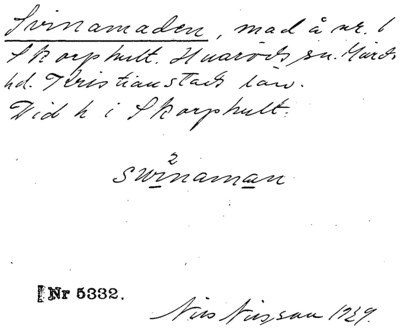 Svinamaden, mad å nr. 1
Skorphult. Huaröds sn. Gärds
hd. Kristianstads län.
Vid k i Skorphult.
2
swinaman
Nr 5332.
Nils Nilsson 1929.